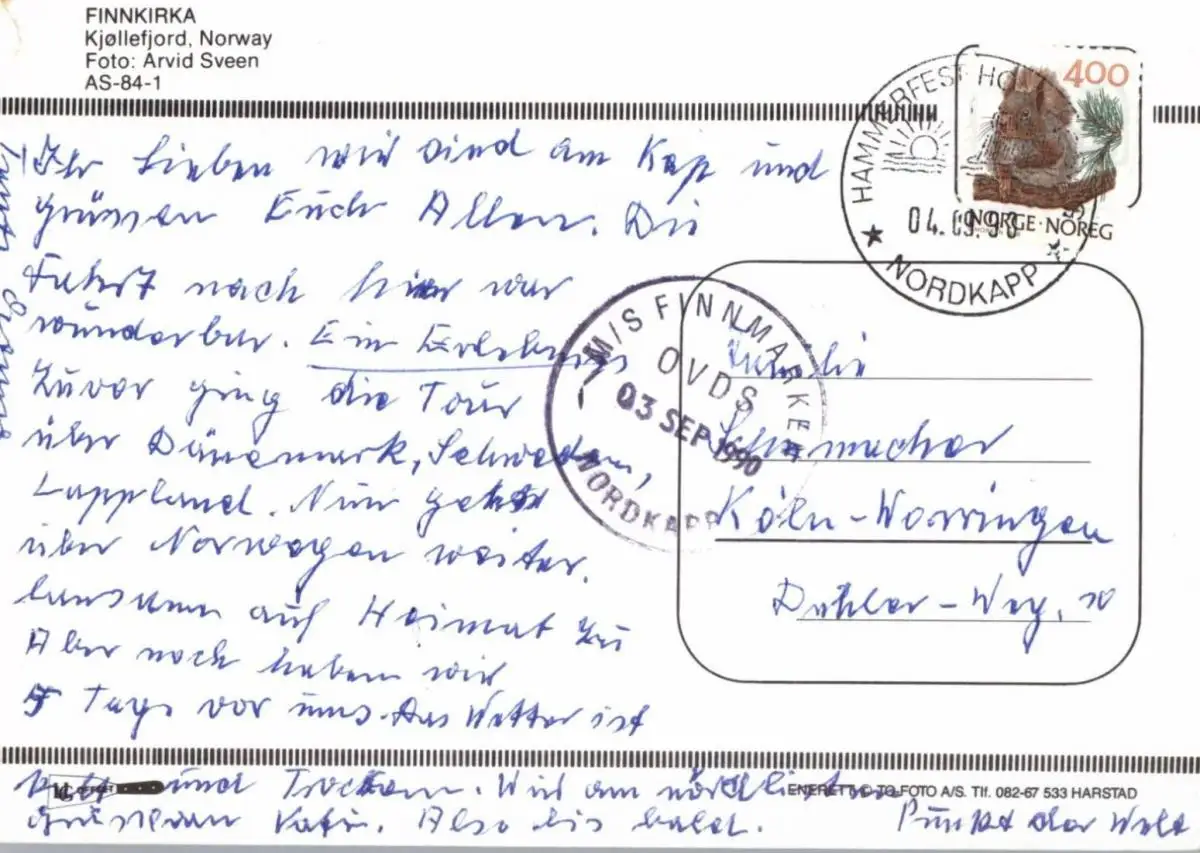 FINNKIRKA
Kjøllefjord, Norway
Foto: Arvid Sveen
AS-84-1
HAMMERFEST
400
04.09.90
NORGE·NOREG
NORDKAPP
Ihr Lieben wir sind am Kap und
grüssen Euch Allen. Die
Fahrt nach hier war
wunderbar. Ein Erlebnis
Zuvor ging die Tour
über Dänemark, Schweden,
Lappland. Nun geht
über Norwegen weiter.
langsam auf Heimat zu
Aber noch haben wir
Tage vor uns. Das Wetter ist
und Trocken. Wir am nördlichsten
Punkt der Welt
Also bis bald.
M/S FINNMARKEN
OVDS
03 SEP 1990
NORDKAPP
Familie
Schumacher
Köln-Worringen
Weg, 10
ENERETT © TO-FOTO A/S. Tlf. 082-67 533 HARSTAD